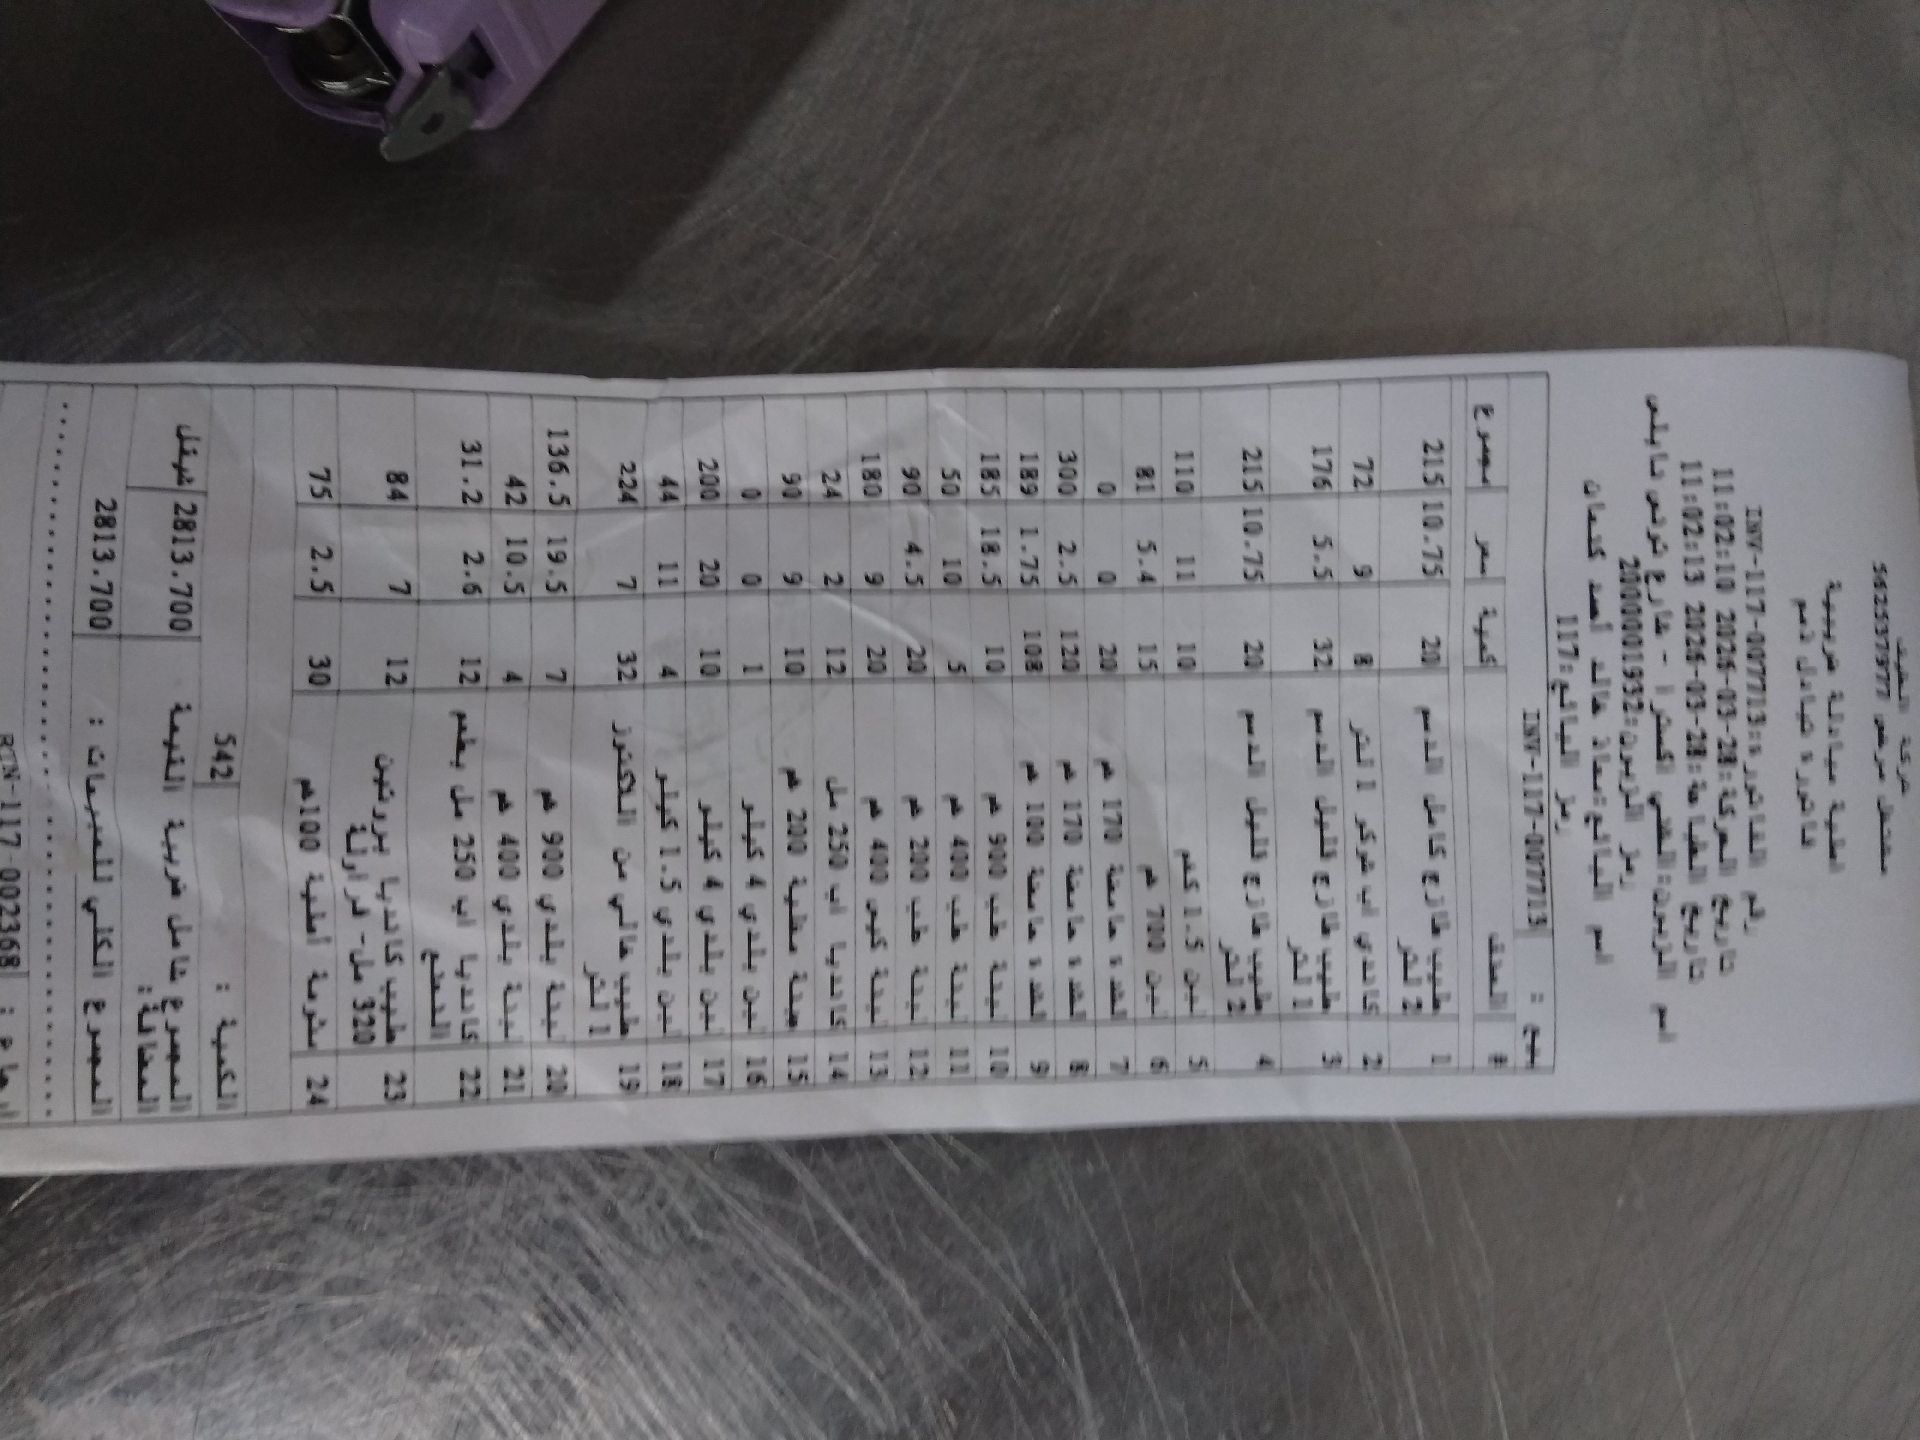 شركة الجنيد
مشتغل مرخص 562537977
اصلية مبادلة ضريبية
فاتورة شيادل ذمم
رقم الفاتورة:INV-117-0077713
تاريخ الحركة:28-03-2026 11:02:10
تاريخ الطباعة:28-03-2026 11:02:13
اسم الزبون: اكسترا - شارع
رمز الزبون:2000001932
اسم البائع:معاذ خالد أحمد
رمز البائع:117
بيع : INV-117-0077713
# الصنف كمية سعر مجموع
1 حليب طازج كامل الدسم 2 لتر 20 10.75 215
2 كاندي اب شوكو 1 لتر 8 9 72
3 حليب طازج قليل الدسم 1 لتر 32 5.5 176
4 حليب طازج قليل الدسم 2 لتر 20 10.75 215
5 لبن 1.5 كغم 10 11 110
6 لبن 700 غم 15 5.4 81
7 شدة حامضة 170 غم 20 0 0
8 شدة حامضة 170 غم 120 2.5 300
9 شدة حامضة 100 غم 108 1.75 189
10 لبنة علب 900 غم 10 18.5 185
11 لبنة علب 400 غم 5 10 50
12 لبنة علب 200 غم 20 4.5 90
13 لبنة كيس 400 غم 20 9 180
14 كانديا اب 250 مل 12 2 24
15 جبنة مغلية 200 غم 10 9 90
16 لبن بلدي 4 كيلو 1 0 0
17 لبن بلدي 4 كيلو 10 20 200
18 لبن بلدي 1.5 كيلو 4 11 44
19 حليب خالي من اللاكتوز 1 لتر 32 7 224
20 لبنة بلدي 900 غم 7 19.5 136.5
21 لبنة بلدي 400 غم 4 10.5 42
22 كانديا اب 250 مل بطعم 12 2.6 31.2
23 حليب كانديا بروتين 320 مل- فراولة 12 7 84
24 شرمة أصلية 100غم 30 2.5 75
الكمية : 542
المجموع شامل ضريبة القيمة المضافة: 2813.700 شيقل
المجموع الكلي للمبيعات : 2813.700
ارجاع : RTN-117-002368